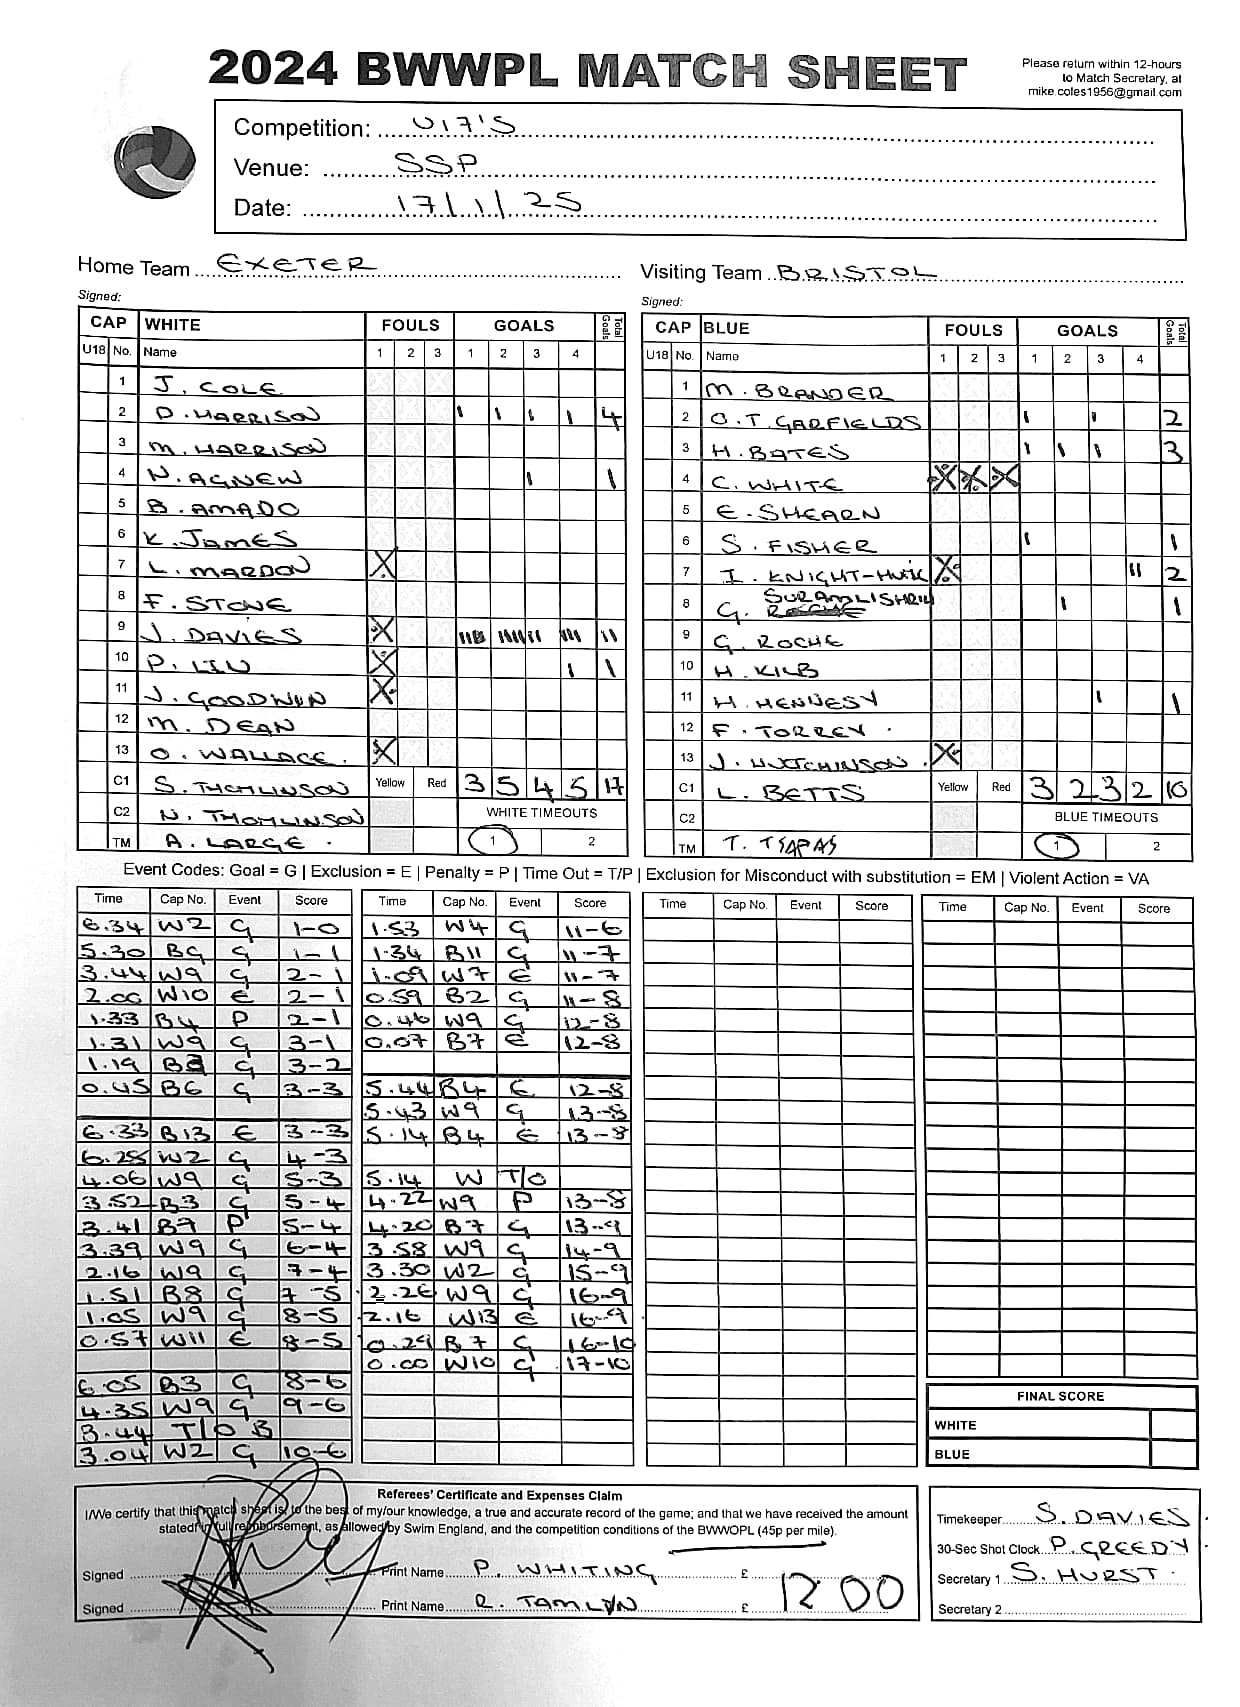 2024 BWWPL MATCH SHEET
Please return within 12-hours
to Match Secretary, at
mike.coles1956@gmail.com
Competition: U17'S
Venue: SSP
Date: 17/1/25
Home Team EXETER
Visiting Team BRISTOL
Signed:
Signed:
CAP WHITE FOULS GOALS Total Goals
U18 No. Name 1 2 3 1 2 3 4
1 J. COLE
2 D. HARRISON I I I I 4
3 M. HARRISON
4 N. AGNEW I 1
5 B. AMADO
6 K. JAMES
7 L. MARDON X
8 F. STONE
9 J. DAVIES X 11
10 P. LIU X I 1
11 J. GOODWIN X
12 M. DEAN
13 O. WALLACE. X
C1 S. THOMLINSON Yellow Red 3 5 4 5 17
C2 N. THOMLINSON WHITE TIMEOUTS
TM A. LARGE. 1 2
CAP BLUE FOULS GOALS Total Goals
U18 No. Name 1 2 3 1 2 3 4
1 M. BRANDER
2 O.T. GARFIELDS I I 2
3 H. BATES I I I 3
4 C. WHITE X X X
5 E. SHEARN
6 S. FISHER I 1
7 I. KNIGHT- X II 2
8 G. I 1
9 G. ROCHE
10 H. KILB
11 H. HENNESY I 1
12 F. TORREY.
13 J. HUTCHINSON. X
C1 L. BETTS Yellow Red 3 2 3 2 10
C2 BLUE TIMEOUTS
TM T. TSAPAS 1 2
Event Codes: Goal = G | Exclusion = E | Penalty = P | Time Out = T/P | Exclusion for Misconduct with substitution = EM | Violent Action = VA
Time Cap No. Event Score
6.34 W2 G 1-0
5.30 B9 G 1-1
3.44 W9 G 2-1
2.00 W10 E 2-1
1.33 B4 P 2-1
1.31 W9 G 3-1
1.19 B3 G 3-2
0.45 B6 G 3-3
6.33 B13 E 3-3
6.25 W2 G 4-3
4.06 W9 G 5-3
3.52 B3 G 5-4
3.41 B7 P 5-4
3.39 W9 G 6-4
2.16 W9 G 7-4
1.51 B8 G 7-5
1.05 W9 G 8-5
0.57 W11 E 8-5
6.05 B3 G 8-6
4.35 W9 G 9-6
3.44 T/O B
3.04 W2 G 10-6
Time Cap No. Event Score
1.53 W4 G 11-6
1.34 B11 G 11-7
1.09 W7 E 11-7
0.59 B2 G 11-8
0.46 W9 G 12-8
0.07 B7 E 12-8
5.44 B4 E 12-8
5.43 W9 G 13-8
5.14 B4 E 13-8
5.14 W T/O
4.22 W9 P 13-8
4.20 B7 G 13-9
3.58 W9 G 14-9
3.30 W2 G 15-9
2.26 W9 G 16-9
2.16 W13 E 16-9
0.29 B7 G 16-10
0.00 W10 G 17-10
Time Cap No. Event Score
Time Cap No. Event Score
FINAL SCORE
WHITE
BLUE
Referees' Certificate and Expenses Claim
I/We certify that this match sheet is, to the best of my/our knowledge, a true and accurate record of the game; and that we have received the amount
stated in full reimbursement, as allowed by Swim England, and the competition conditions of the BWWOPL (45p per mile).
Signed Print Name P. WHITING £
Signed Print Name R. TAMLYN £ 12.00
Timekeeper S. DAVIES
30-Sec Shot Clock P. GREEDY
Secretary 1 S. HURST
Secretary 2